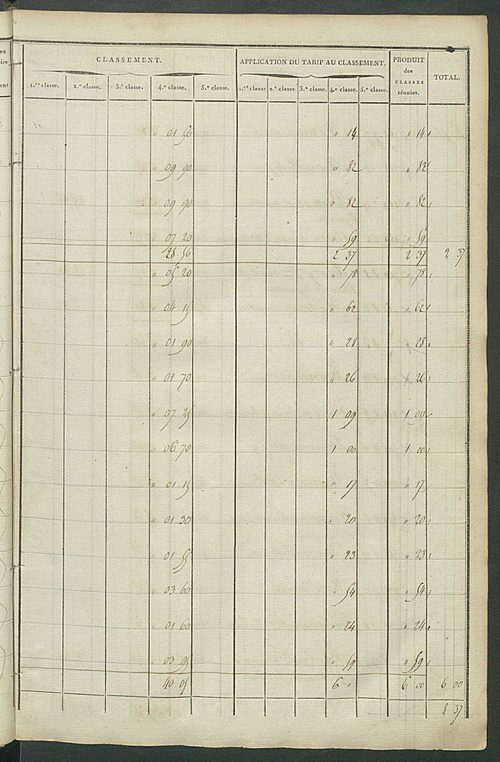 CLASSEMENT. APPLICATION DU TARIF AU CLASSEMENT. PRODUIT des CLASSES réunies. TOTAL.
1.re classe. 2.e classe. 3.e classe. 4.e classe. 5.e classe. 1.re classe 2.e classe. 3.e classe. 4.e classe. 5.e classe.
" 01 56 " 14 " 14
" 09 90 " 82 " 82
" 09 90 " 82 " 82
" 07 20 " 59 " 59
28 56 2 37 2 37 2 37
" 05 20 " 78 " 78
" 04 15 " 62 " 62
" 01 90 " 28 " 28
" 01 70 " 26 " 26
" 07 25 1 09 1 09
" 06 70 1 00 1 00
" 01 15 " 17 " 17
" 01 30 " 20 " 20
" 01 55 " 23 " 23
" 03 60 " 54 " 54
" 01 60 " 24 " 24
" 03 95 " 59 " 59
40 05 6 " 6 00 6 00
2 37